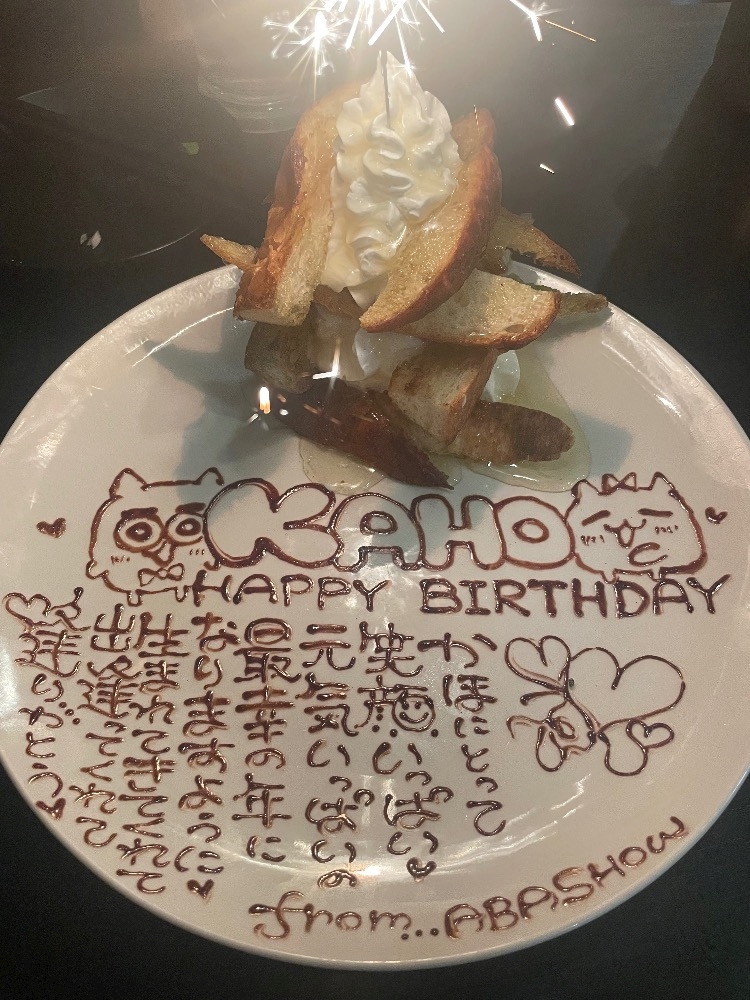 KAHO
HAPPY BIRTHDAY
かほにとって
笑顔いっぱい
元気いっぱいの
最幸の年に
なりますように
産まれてきてくれて
出逢えてくれて
from...ABASHOW